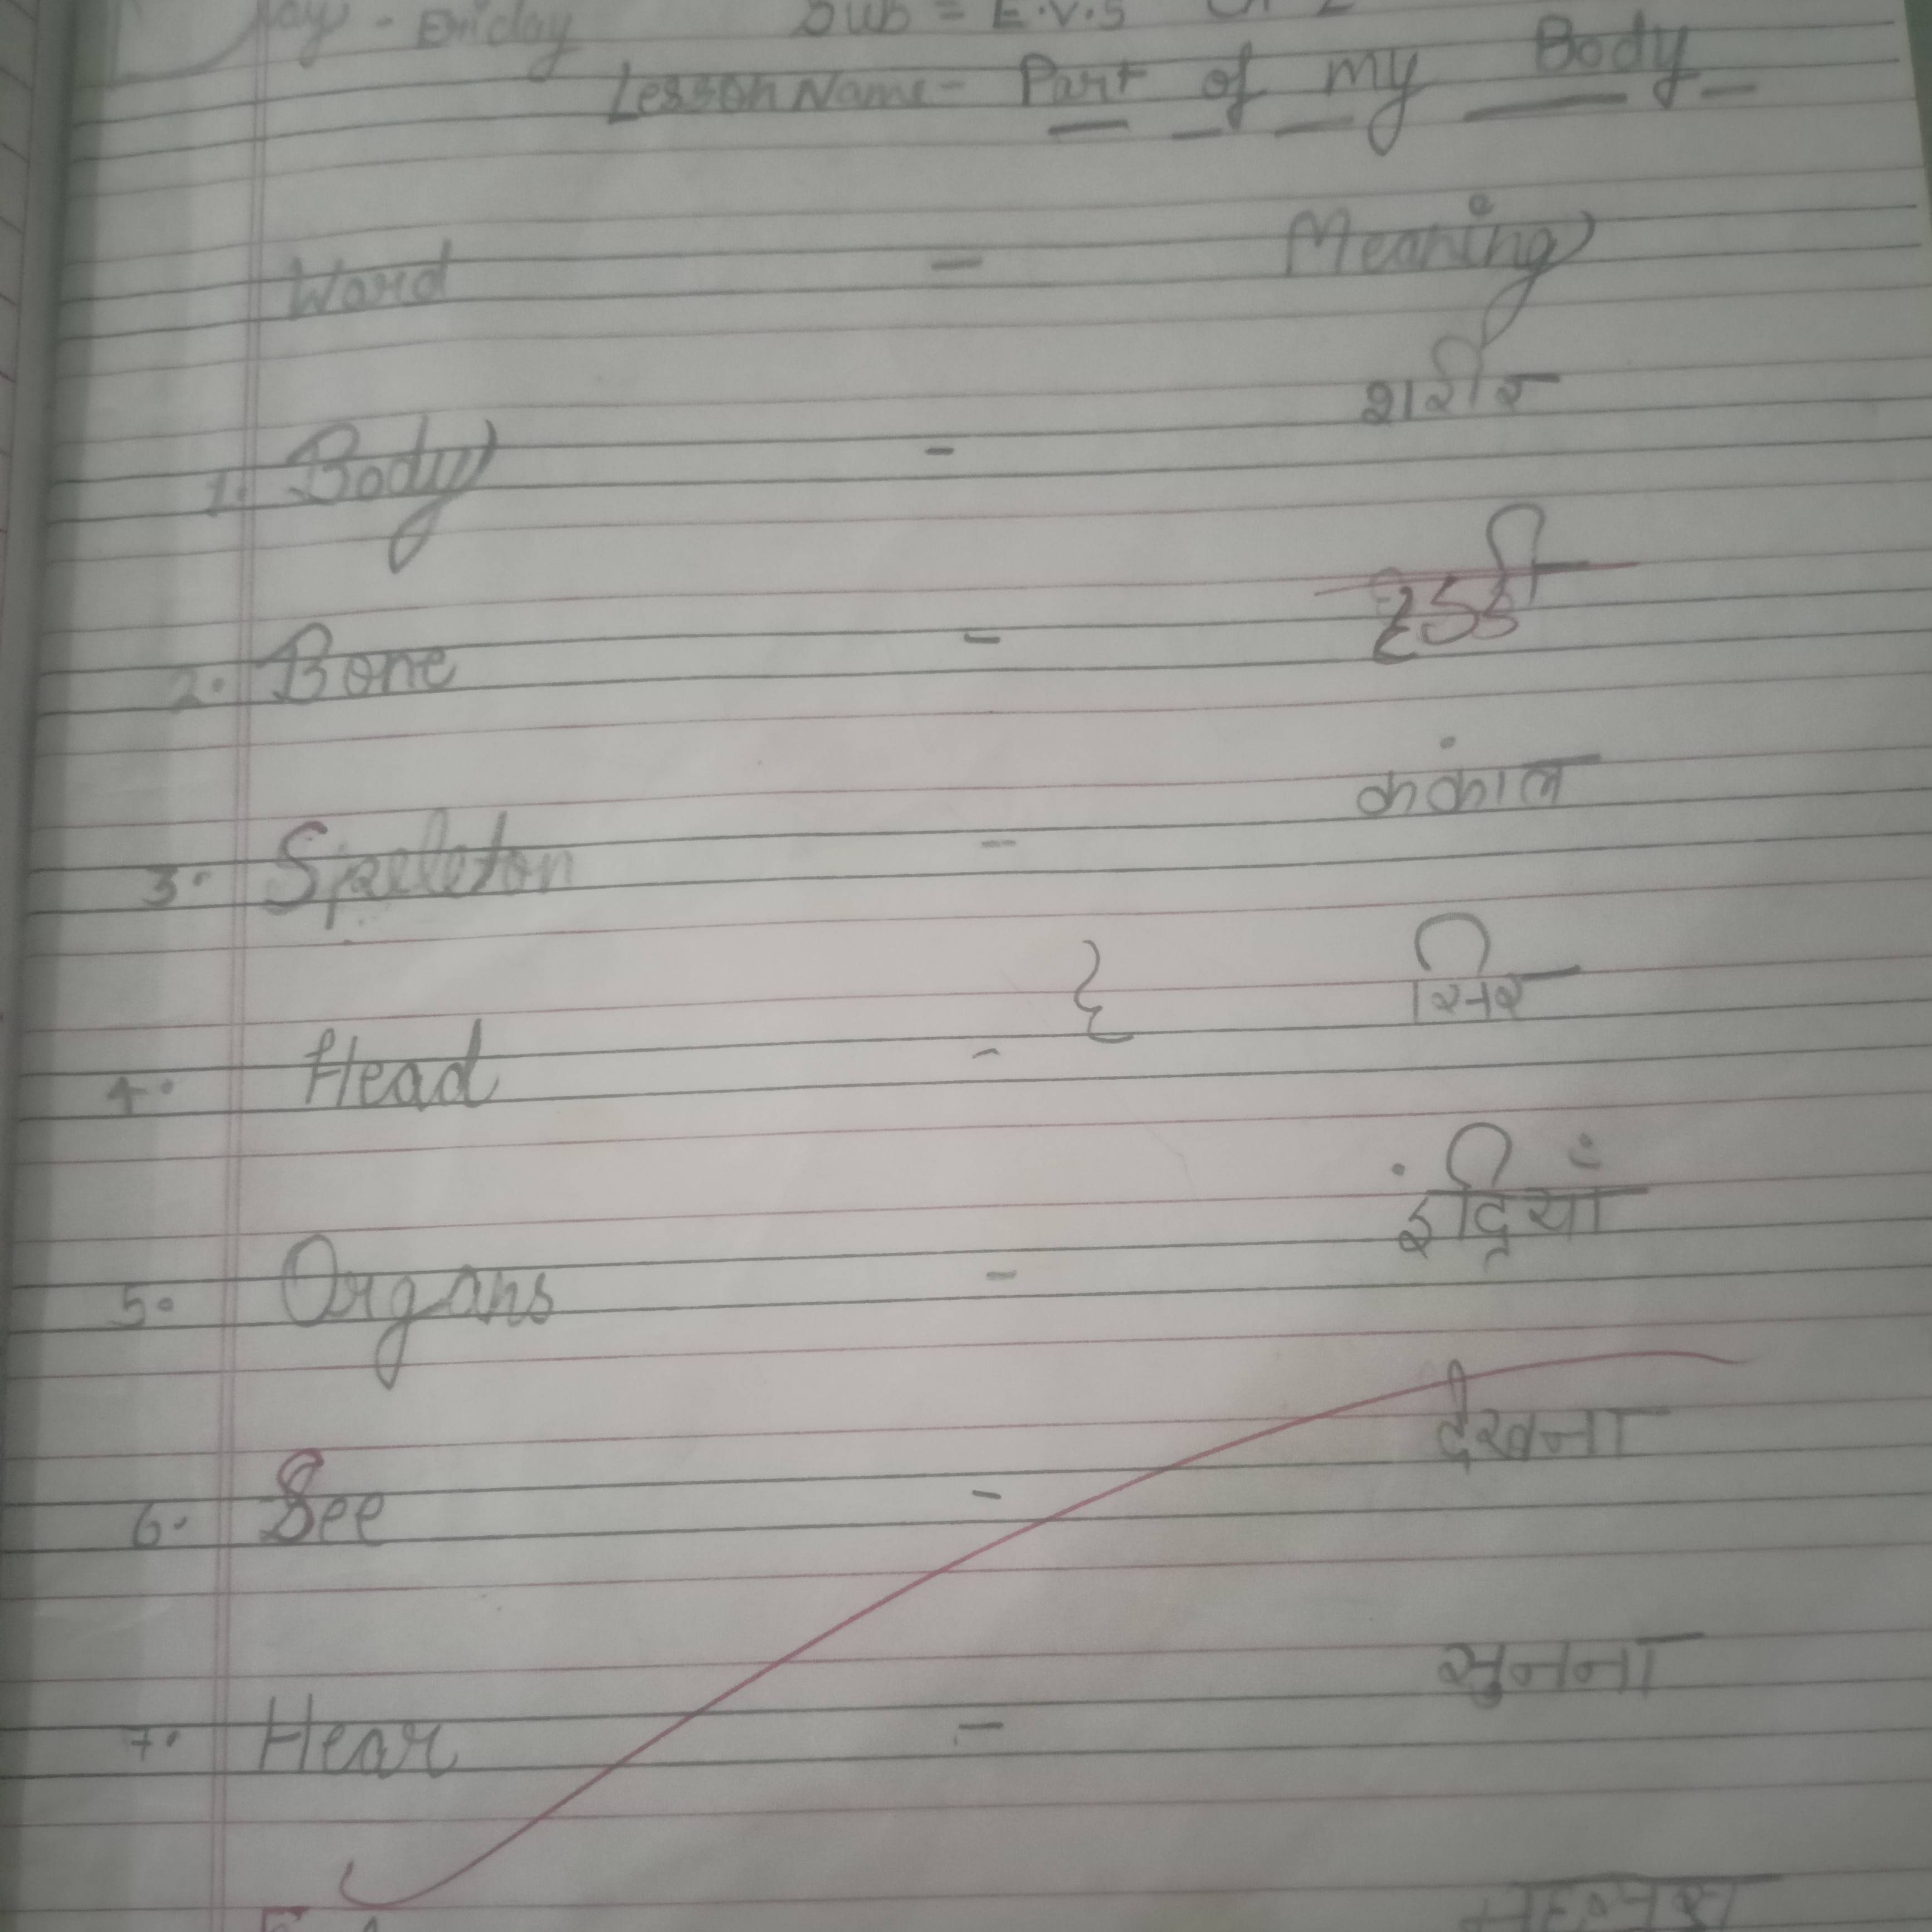 Day - Friday Sub = E.V.S
Lesson Name - Part of my Body
Word - Meaning
1. Body - शरीर
2. Bone - हड्डी
3. Skeleton - कंकाल
4. Head - सिर
5. Organs - इंद्रियाँ
6. See - देखना
7. Hear - सुनना